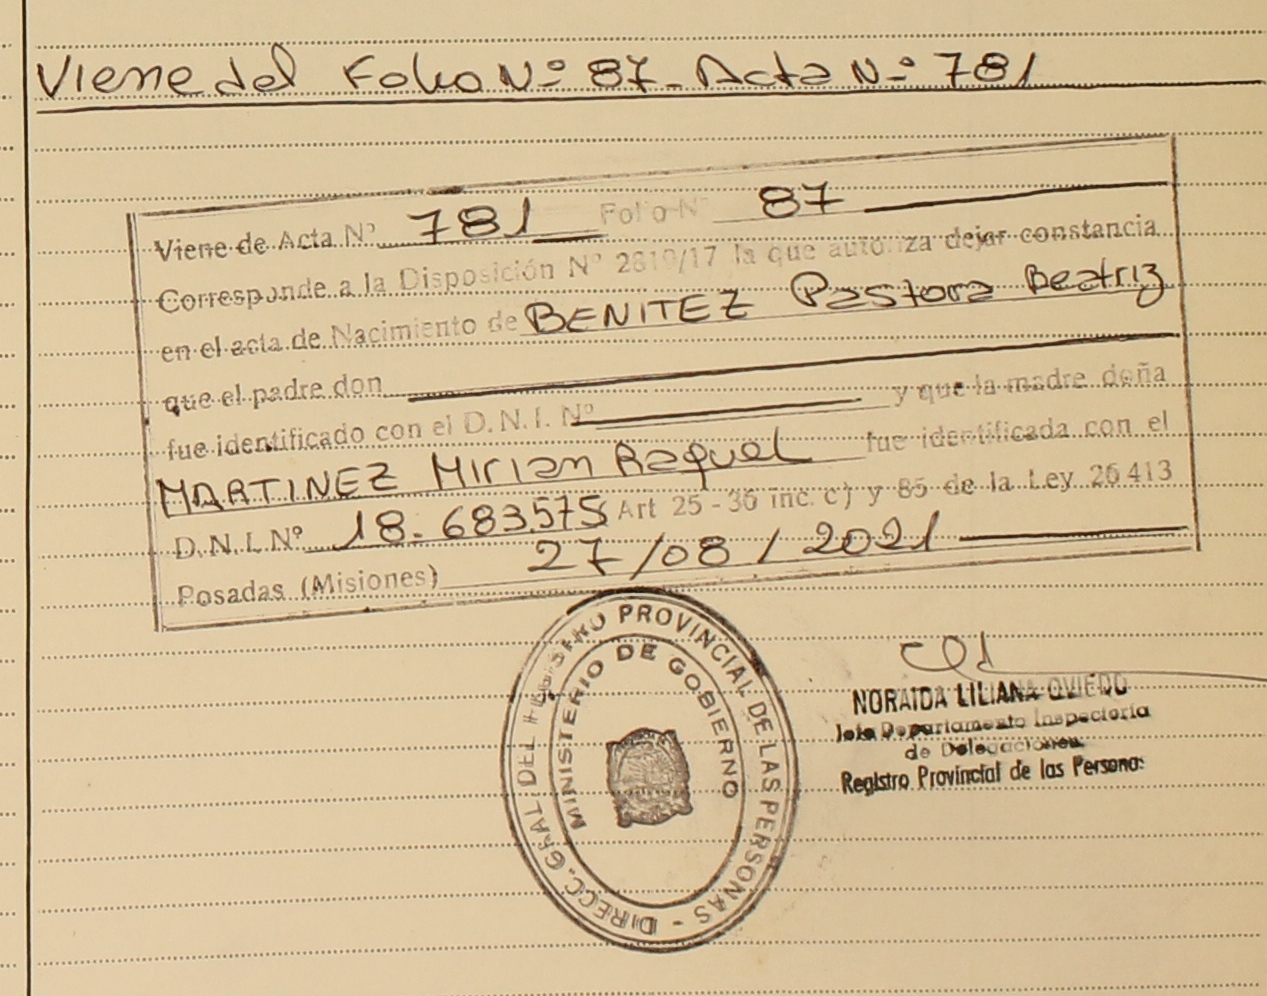 Viene del Folio Nº 87 - Acta Nº 781
Viene de Acta Nº 781 Folio Nº 87
Corresponde a la Disposición Nº 2819/17 la que autoriza dejar constancia
en el acta de Nacimiento de BENITEZ Pastora Beatriz
que el padre don
fue identificado con el D.N.I. Nº y que la madre doña
MARTINEZ Mirian Raquel fue identificada con el
D.N.I. Nº 18.683.575 Art 25 - 36 inc. c) y 85 de la Ley 26 413
Posadas (Misiones) 27/08/2021
DIRECC. GRAL. DEL REGISTRO PROVINCIAL DE LAS PERSONAS -
MINISTERIO DE GOBIERNO
NORAIDA LILIANA OVIEDO
Jefe Departamento Inspectoria
de Delegaciones
Registro Provincial de las Personas